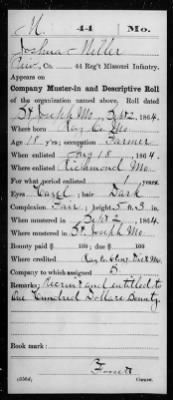 M 44 Mo.
Joshua Miller
Priv., Co. 44 Reg't Missouri Infantry.
Appears on
Company Muster-in and Descriptive Roll
of the organization named above. Roll dated
St Joseph Mo Sept 2, 1864.
Where born Ray Co. Mo
Age 18 y'rs; occupation Farmer
When enlisted Aug 18, 1864.
Where enlisted Richmond Mo
For what period enlisted years.
Eyes Hazel; hair Dark
Complexion Fair; height 5 ft. in.
When mustered in Sept 2, 1864.
Where mustered in St. Joseph Mo.
Bounty paid $ 100; due $ 100
Where credited Ray Co. Mo.
Company to which assigned B
Remarks: Recruit and entitled to
One Hundred Dollars Bounty.
Book mark:
(356d) Copyist.